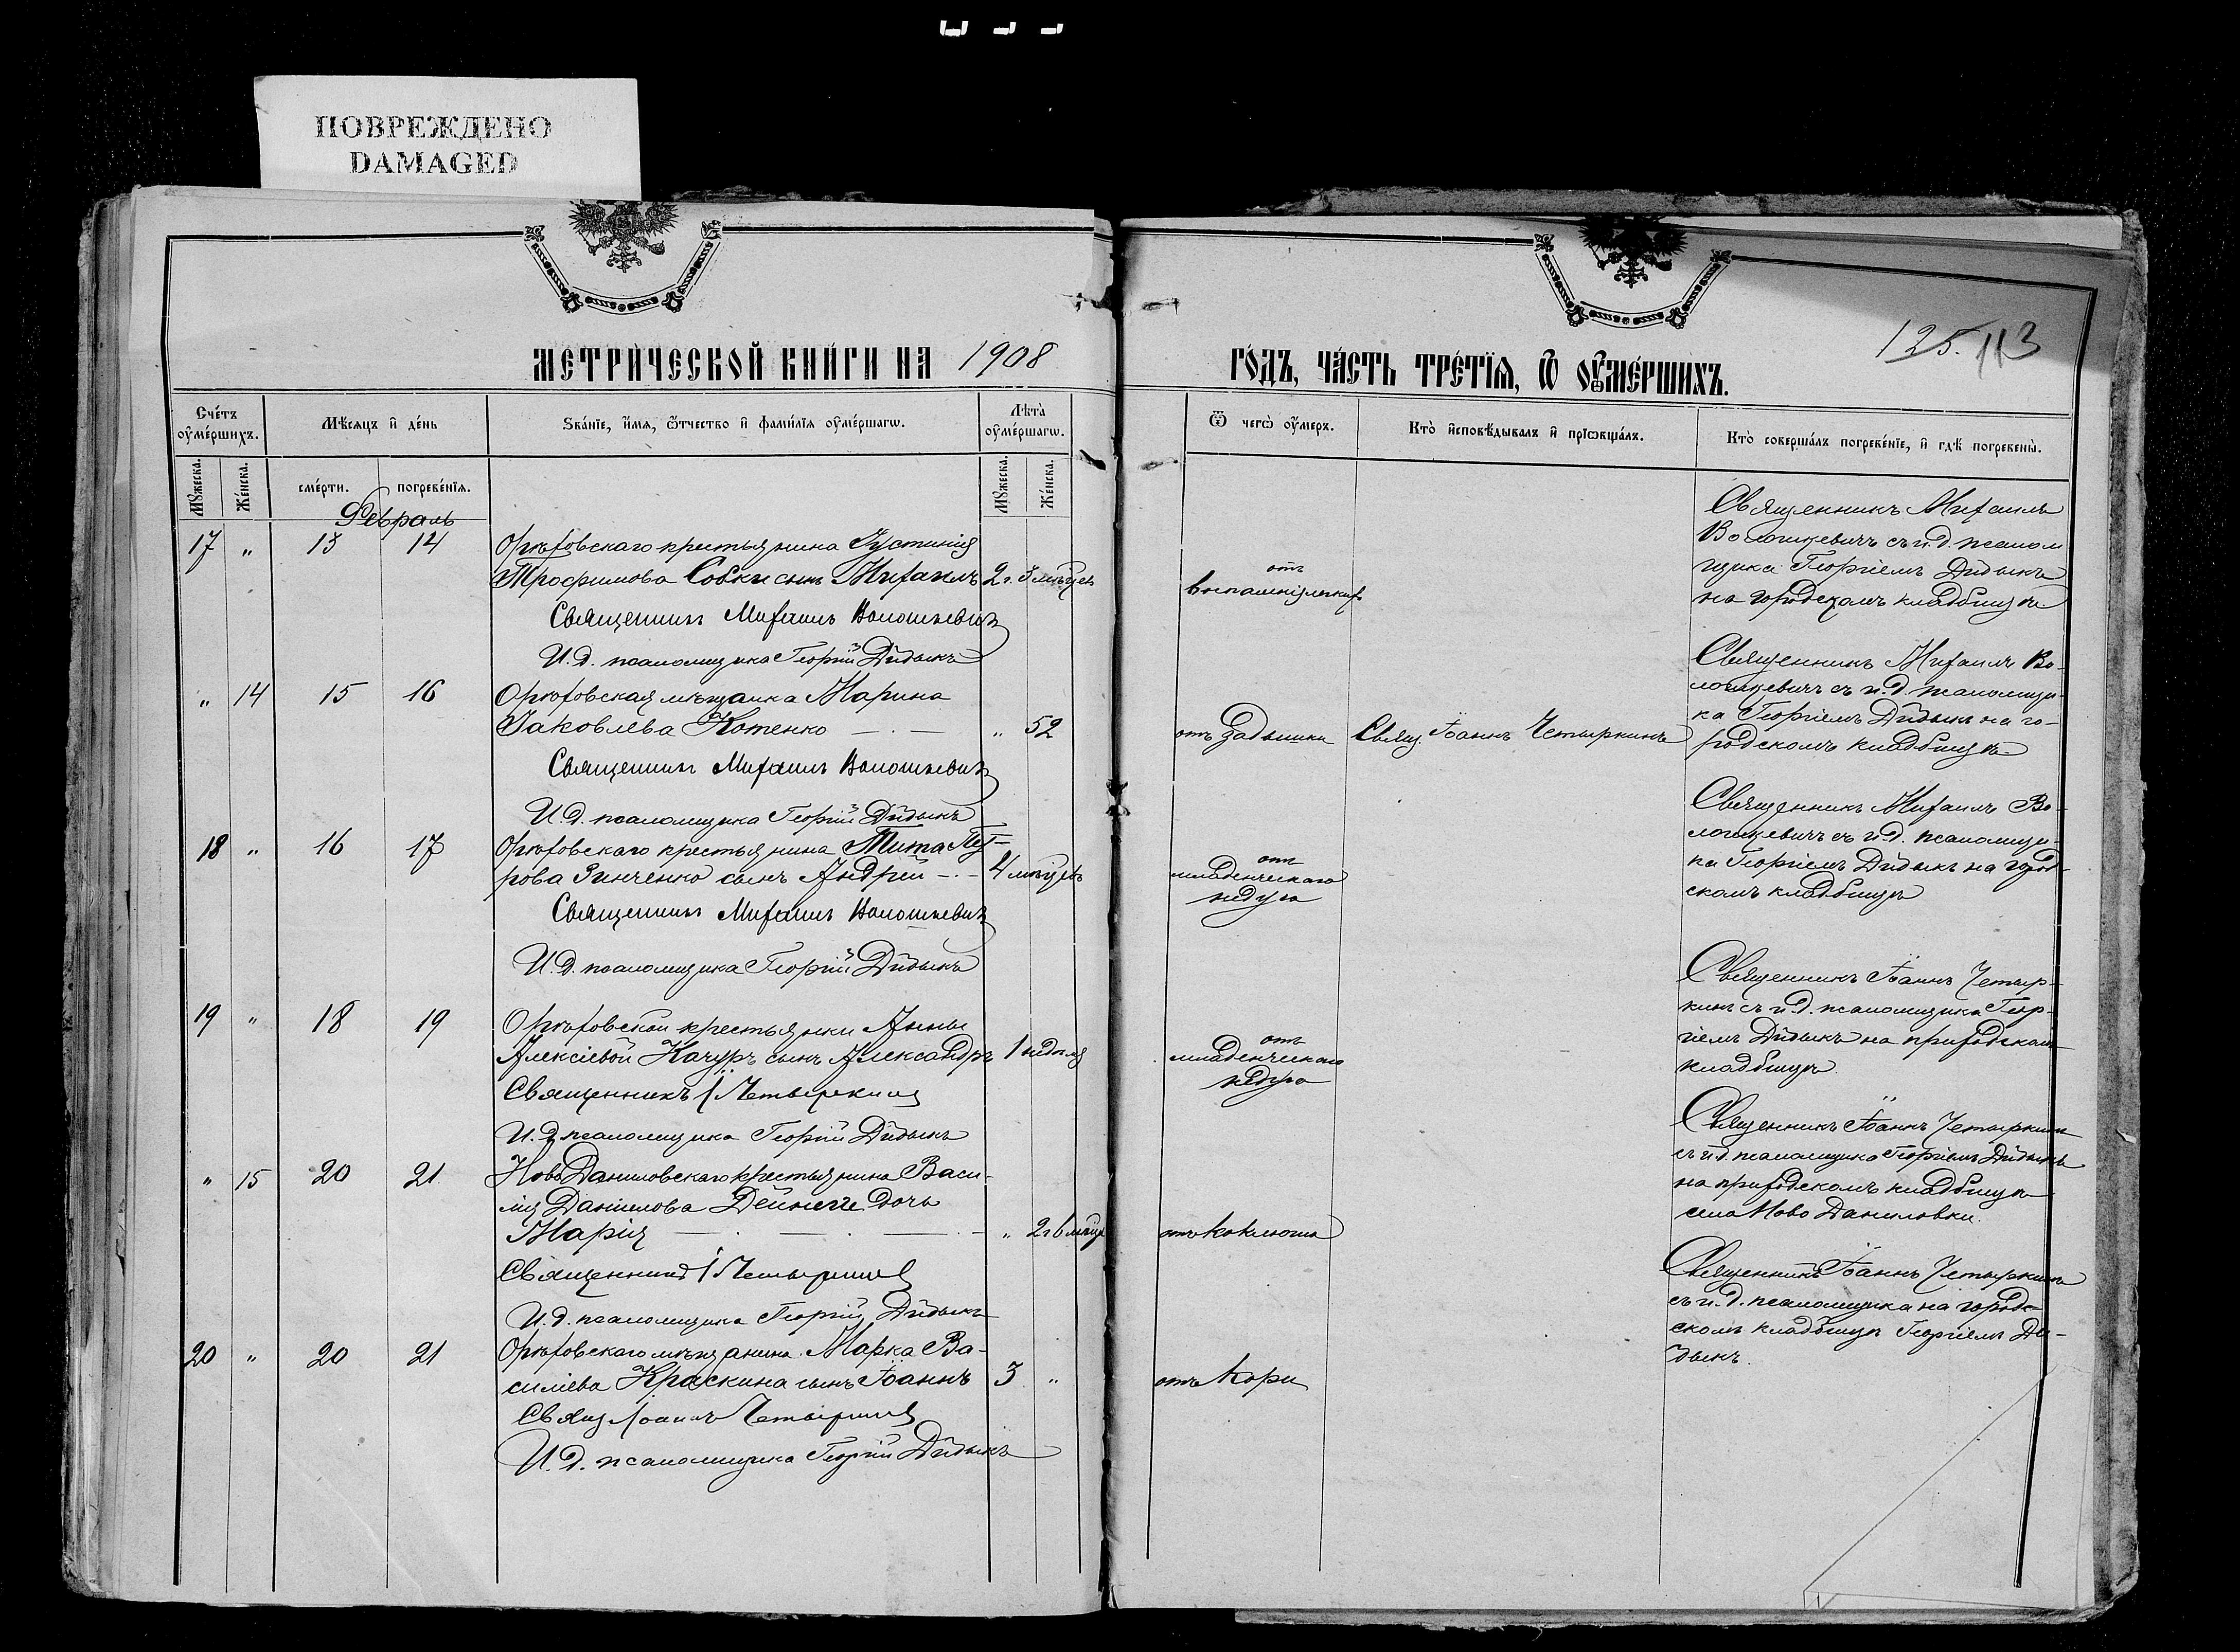 ПОВРЕЖДЕНО
DAMAGED
МЕТРИЧЕСКОЙ КНИГИ НА 1908
ГОДЪ, ЧАСТЬ ТРЕТІЯ, Ѡ ОУМЕРШИХЪ.
125. 113
Счетъ оумершихъ.
Мѣсяцъ и день
Званіе, имя, ѿчество и фамилія оумершагѡ.
Лѣта оумершагѡ.
Ѿ чегѡ оумеръ.
Кто исповѣдывалъ и пріѡбщалъ.
Кто совершалъ погребеніе, и гдѣ погребены.
Мужеска.
Женска.
смерти.
погребенія.
Мужеска.
Женска.
Февраль
17 " 13 14 Орѣховскаго крестьянина Іустинія
Трофимова Собки сынъ Михаилъ 2 г. 3 мѣсяцев
Священникъ Михаилъ Волошкевичъ
И.д. псаломщика Георгій Дидыкъ
отъ
воспаленія легкихъ
Священникъ Михаилъ
Волошкевичъ съ и.д. псалом
щика Георгіемъ Дидыкъ
на городскомъ кладбищѣ
" 14 15 16 Орѣховская мѣщанка Марина
Іаковлева Котенко — . — " 52
Священникъ Михаилъ Волошкевичъ
И.д. псаломщика Георгій Дидыкъ
отъ Задышки
Свящ. Іоаннъ Четыркинъ
Священникъ Михаилъ Во-
лошкевичъ съ и.д. псаломщи-
ка Георгіемъ Дидыкъ на го-
родскомъ кладбищѣ
18 " 16 17 Орѣховскаго крестьянина Тита Пет-
рова Зинченко сынъ Андрей — . — 4 мѣсяцевъ
Священникъ Михаилъ Волошкевичъ
И.д. псаломщика Георгій Дидыкъ
отъ
младенческаго
недуга
Священникъ Михаилъ Во-
лошкевичъ съ и.д. псаломщи-
ка Георгіемъ Дидыкъ на город-
скомъ кладбищѣ
19 " 18 19 Орѣховской крестьянки Анны
Алексіевой Качуръ сынъ Александръ 1 недѣля
Священникъ І Четыркинъ
И.д. псаломщика Георгій Дидыкъ
отъ
младенческаго
недуга
Священникъ Іоаннъ Четыр-
кинъ съ и.д. псаломщика Геор-
гіемъ Дидыкъ на приходскомъ
кладбищѣ.
" 15 20 21 Ново Даниловскаго крестьянина Васи-
лія Даніилова Дейнеги дочь
Марія — . — . — . — " 2 г 6 мѣсяц
Священникъ І Четыркинъ
И.д. псаломщика Георгій Дидыкъ
отъ коклюша
Священникъ Іоаннъ Четыркинъ
съ и.д. псаломщика Георгіемъ Дидыкъ
на приходскомъ кладбищѣ
села Ново Даниловки.
20 " 20 21 Орѣховскаго мѣщанина Марка Ва-
силіева Краскина сынъ Іоаннъ 3 "
Свящ Іоаннъ Четыркинъ
И.д. псаломщика Георгій Дидыкъ
отъ Кори
Священникъ Іоаннъ Четыркинъ
съ и.д. псаломщика на город-
скомъ кладбищѣ Георгіемъ Ди-
дыкъ.